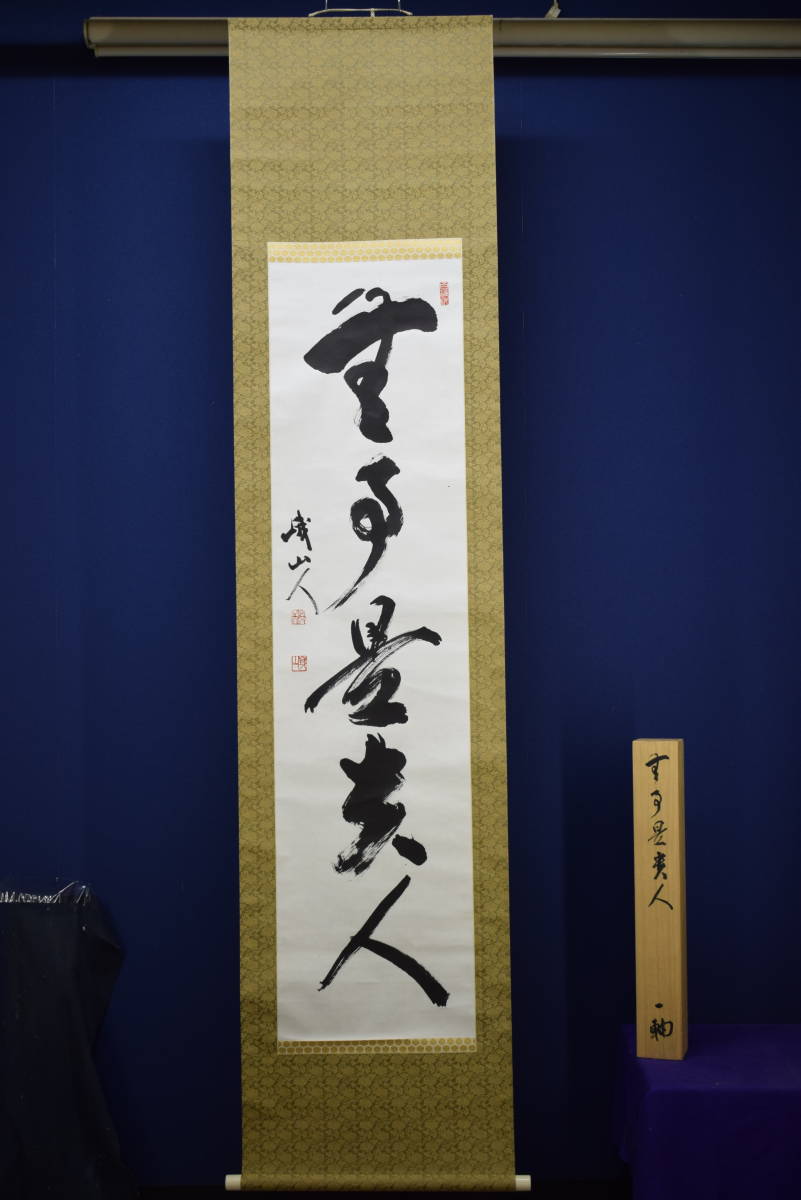 無事是貴人
山人
無事是貴人
一軸